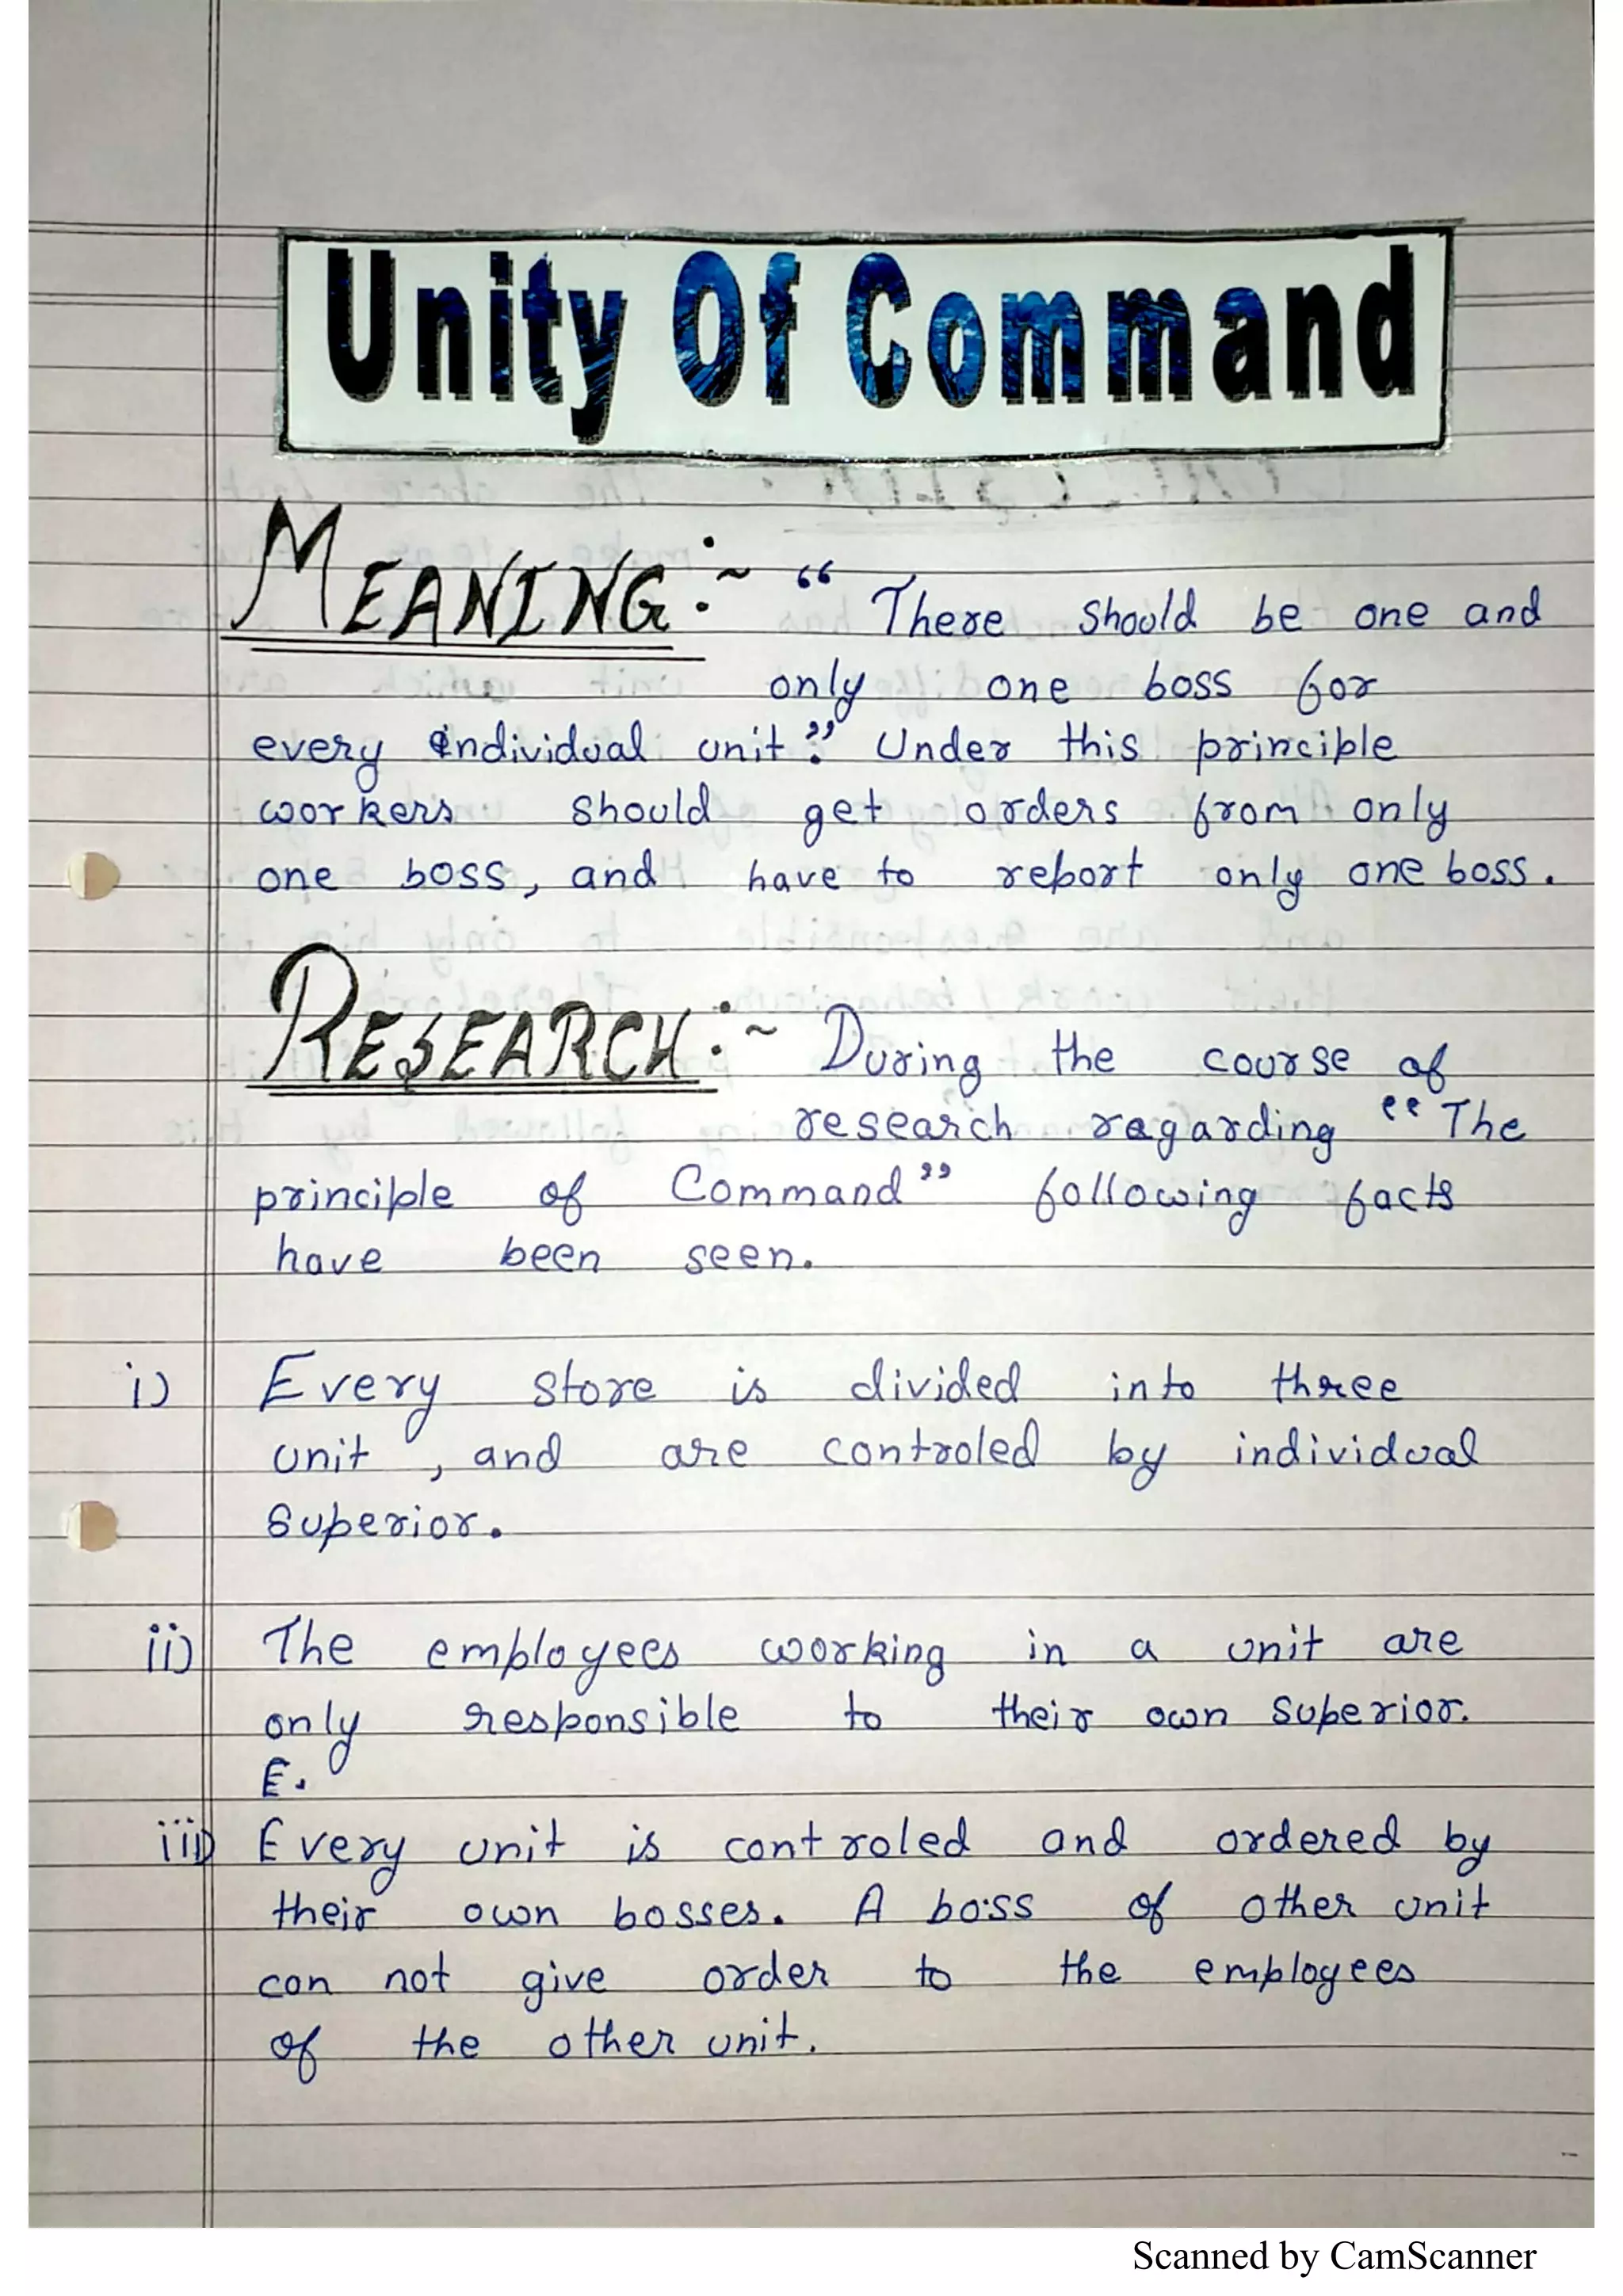 Unity Of Command
MEANING:- " There should be one and
only one boss for
every individual unit." Under this principle
workers should get orders from only
one boss, and have to report only one boss.
RESEARCH:- During the course of
research regarding "The
principle of Command" following facts
have been seen.
i) Every store is divided into three
unit, and are controled by individual
Superior.
ii) The employees working in a unit are
only responsible to their own Superior.
E.
iii) Every unit is controled and ordered by
their own bosses. A boss of other unit
can not give order to the employees
of the other unit.
Scanned by CamScanner